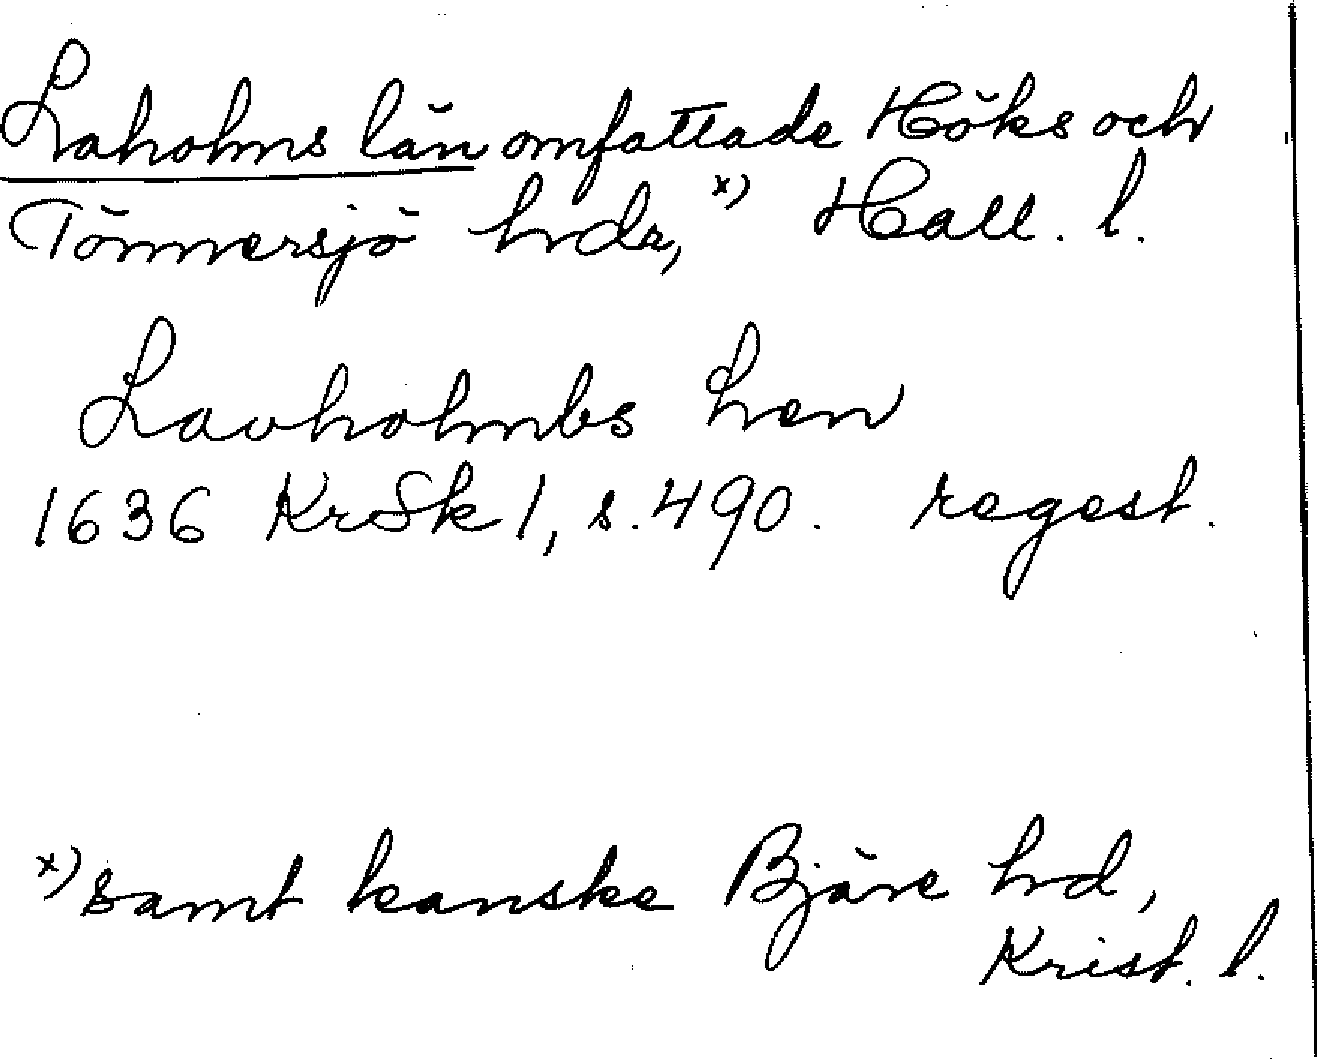 Laholms län omfattade Höks och
Tönnersjö hrdr, x) Hall. l.
Lauholmbs Len
1636 KrSk 1, s. 490. regest.
x) samt kanske Bjäre hrd,
Krist. l.